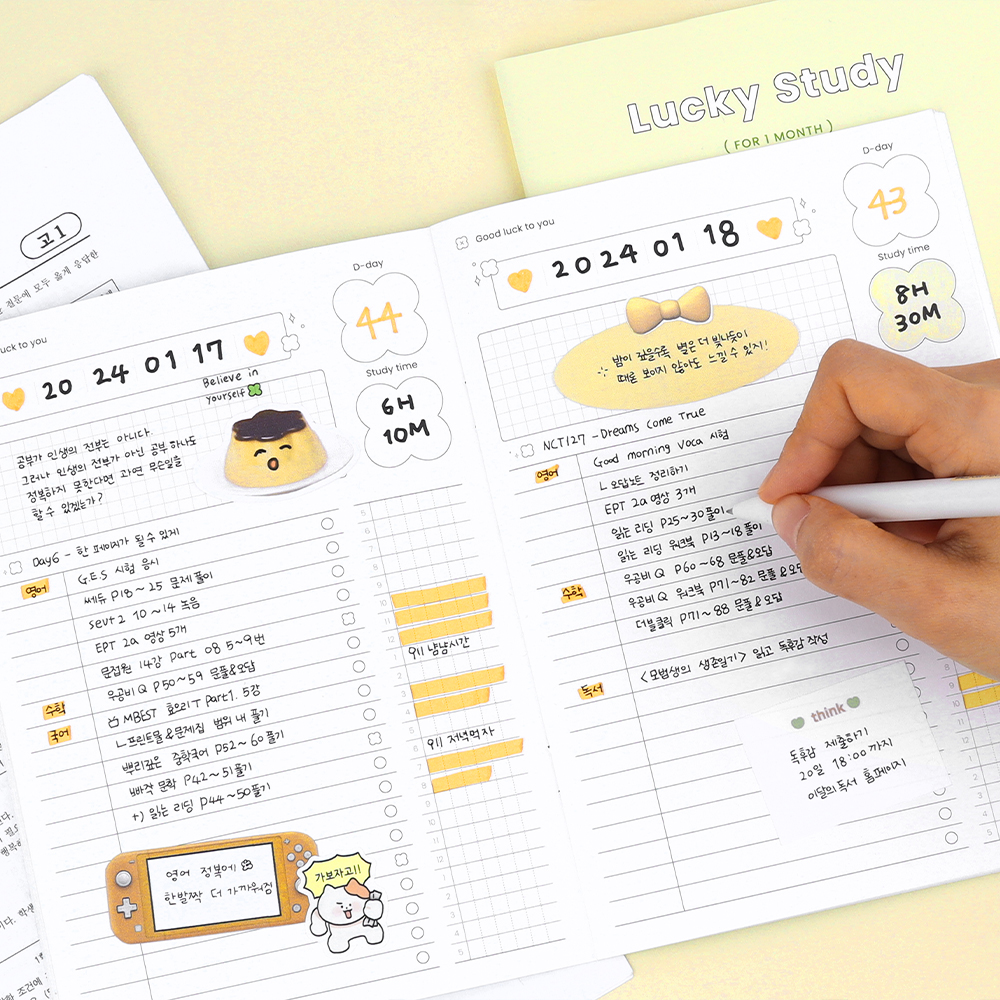 Lucky Study
( FOR 1 MONTH )
고1
luck to you
D-day
44
20 24 01 17
Study time
6H
10M
Believe in
yourself
공부가 인생의 전부는 아니다.
그러나 인생의 전부가 아닌 공부 하나도
정복하지 못한다면 과연 무슨일을
할 수 있겠는가?
Day6 - 한 페이지가 될 수 있게
영어
G.E.S 시험 응시
쎄듀 P18~25 문제 풀이
sevt 2 10~14 녹음
EPT 2a 영상 5개
문접원 14강 Part 08 5~9번
수학
우공비 Q P50~59 문풀&오답
국어
MBEST 효으리T Part1. 5강
ㄴ프린트물&문제집 범위 내 풀기
뿌리깊은 중학국어 P52~60 풀기
빠작 문학 P42~51 풀기
+) 읽는 리딩 P44~50 풀기
5
6
7
8
9
10
11
12
911 냠냠시간
2
3
4
911 저녁먹자
6
7
8
영어 정복에
한발짝 더 가까워짐
가보자고!!
Good luck to you
D-day
43
2024 01 18
Study time
8H
30M
밤이 깊을수록 별은 더 빛나듯이
때론 보이지 않아도 느낄 수 있지!
NCT127 - Dreams Come True
영어
Good morning Voca 시험
ㄴ 오답노트 정리하기
EPT 2a 영상 3개
읽는 리딩 P25~30 풀이
읽는 리딩 워크북 P13~18 풀이
수학
우공비 Q P60~68 문풀&오답
우공비 Q 워크북 P71~82 문풀&오답
더블클릭 P71~88 문풀&오답
독서
<모범생의 생존일기> 읽고 독후감 작성
think
독후감 제출하기
20일 18:00 까지
이달의 독서 홈페이지